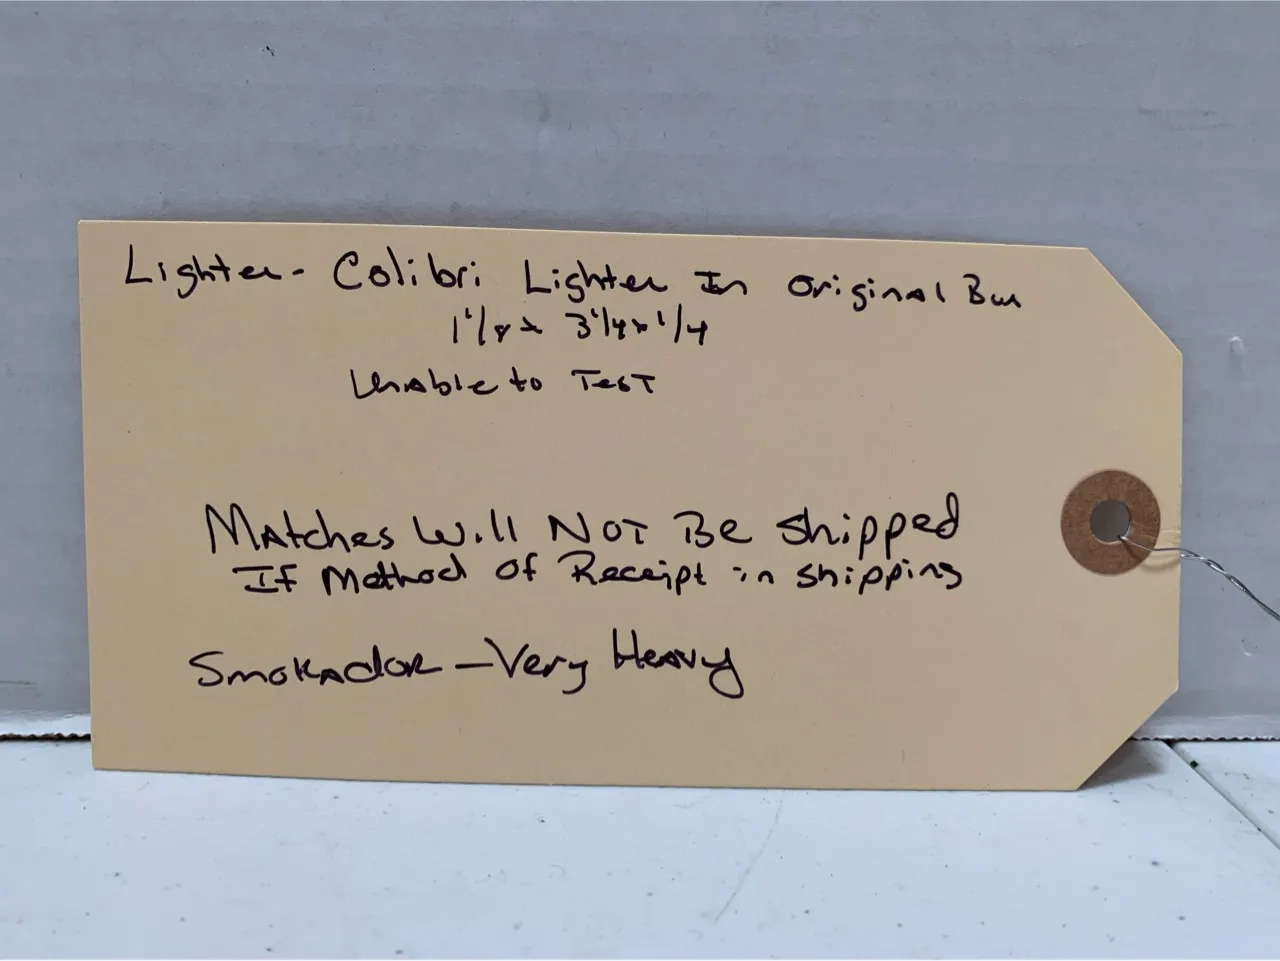 Lighter - Colibri Lighter In Original Box
1 1/8 x 3 1/4 x 1/4
Unable to Test
Matches Will NOT Be Shipped
If Method of Receipt in Shipping
Smokador - Very Heavy